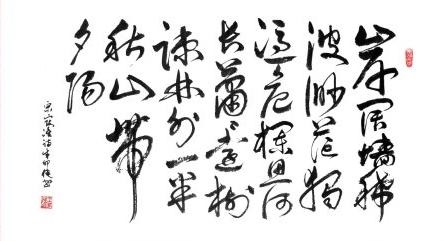 岸阔樯稀
波渺茫独
凭危槛思何
长萧萧远树
疏林外一半
秋山带
夕阳
宋寇准诗辛卯